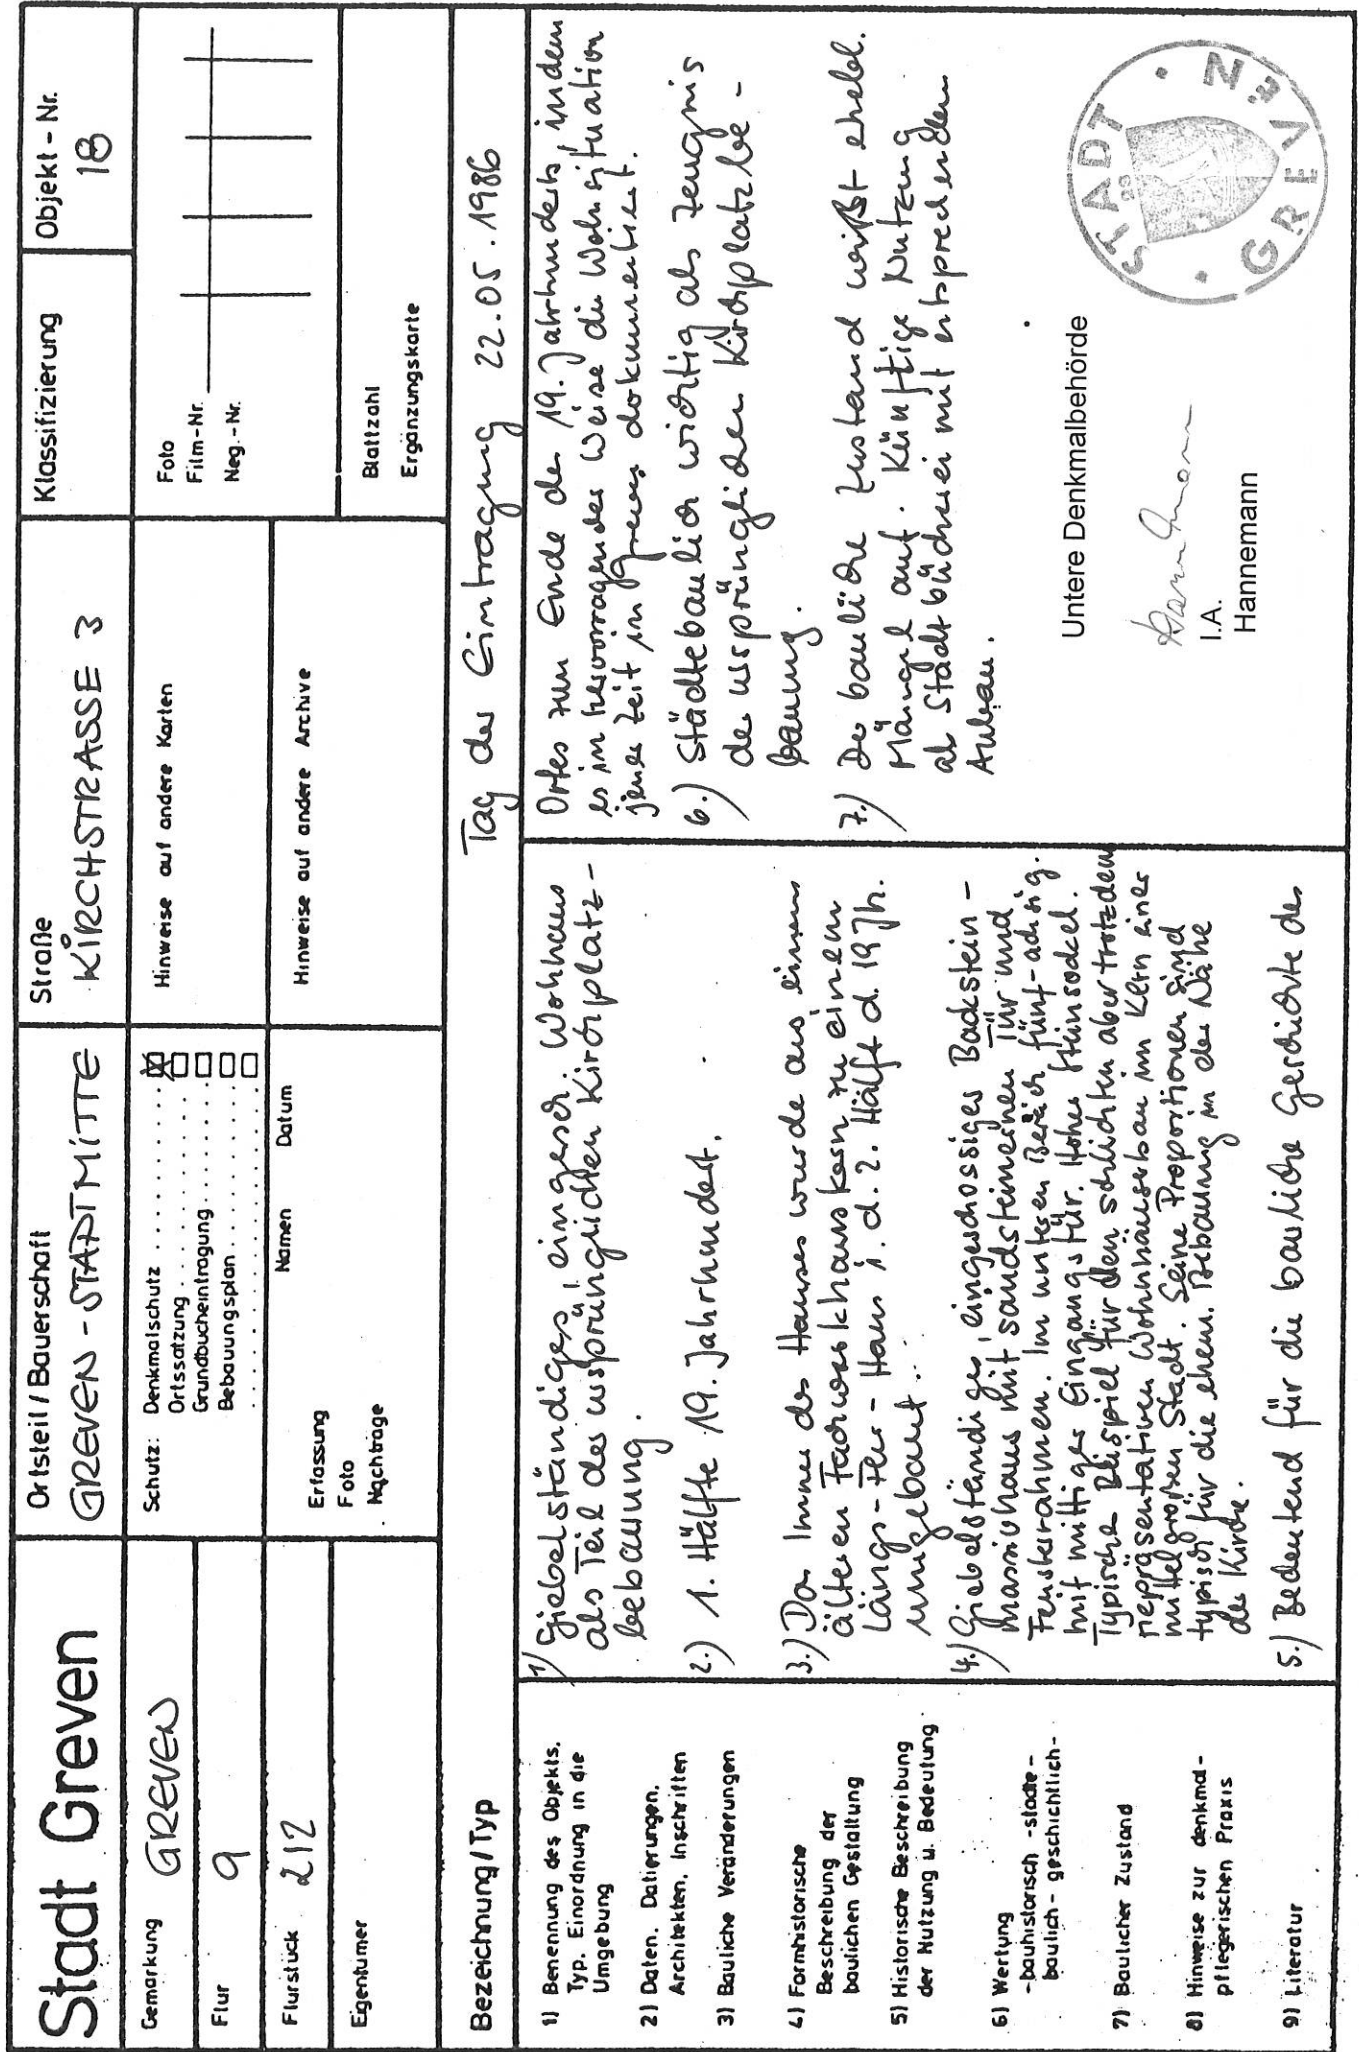 Stadt Greven
Ortsteil / Bauerschaft
GREVEN - STADTMITTE
Straße
KIRCHSTRASSE 3
Klassifizierung
Objekt - Nr.
18
Gemarkung GREVEN
Flur 9
Flurstück 212
Eigentümer
Schutz: Denkmalschutz
Ortssatzung
Grundbucheintragung
Bebauungsplan
Namen Datum
Erfassung
Foto
Nachträge
Hinweise auf andere Karten
Hinweise auf andere Archive
Foto
Film-Nr.
Neg.-Nr.
Blattzahl
Ergänzungskarte
Bezeichnung / Typ
Tag der Eintragung 22.05.1986
1) Benennung des Objekts.
Typ. Einordnung in die
Umgebung
2) Daten. Datierungen.
Architekten. Inschriften
3) Bauliche Veränderungen
4) Formhistorische
Beschreibung der
baulichen Gestaltung
5) Historische Beschreibung
der Nutzung u. Bedeutung
6) Wertung
- bauhistorisch - städte-
baulich - geschichtlich -
7) Baulicher Zustand
8) Hinweise zur denkmal-
pflegerischen Praxis
9) Literatur
1) Giebelständiges, eingesch. Wohnhaus
als Teil der ursprünglichen Kirchplatz-
bebauung.
2.) 1. Hälfte 19. Jahrhundert.
3.) Das Innere des Hauses wurde aus einem
älteren Fachwerkhauskern zu einem
Längs-Flur-Haus i. d. 2. Hälft d. 19 Jh.
umgebaut.
4.) Giebelständiges, eingeschossiges Backstein-
massivhaus mit sandsteinernen Tür und
Fensterrahmen. Im unteren Bereich fünf-achsig
mit mittiger Eingangstür. Hoher Steinsockel.
Typische Beispiel für den schlichten aber trotzdem
repräsentativen Wohnhäuserbau im Kern einer
mittelgroßen Stadt. Seine Proportionen sind
typisch für die ehem. Bebauung in der Nähe
der Kirche.
5.) Bedeutend für die bauliche Geschichte des
Ortes zum Ende des 19. Jahrhunderts, indem
es in hervorragender Weise die Wohnsituation
jener Zeit in Greven dokumentiert.
6.) Städtebaulich wichtig als Zeugnis
der ursprünglichen Kirchplatzbe-
bauung.
7.) Der bauliche Zustand weißt erhebl.
Mängel auf. Künftige Nutzung
als Stadtbücherei mit entsprechendem
Anbau.
Untere Denkmalbehörde
I.A.
Hannemann
STADT GREVEN